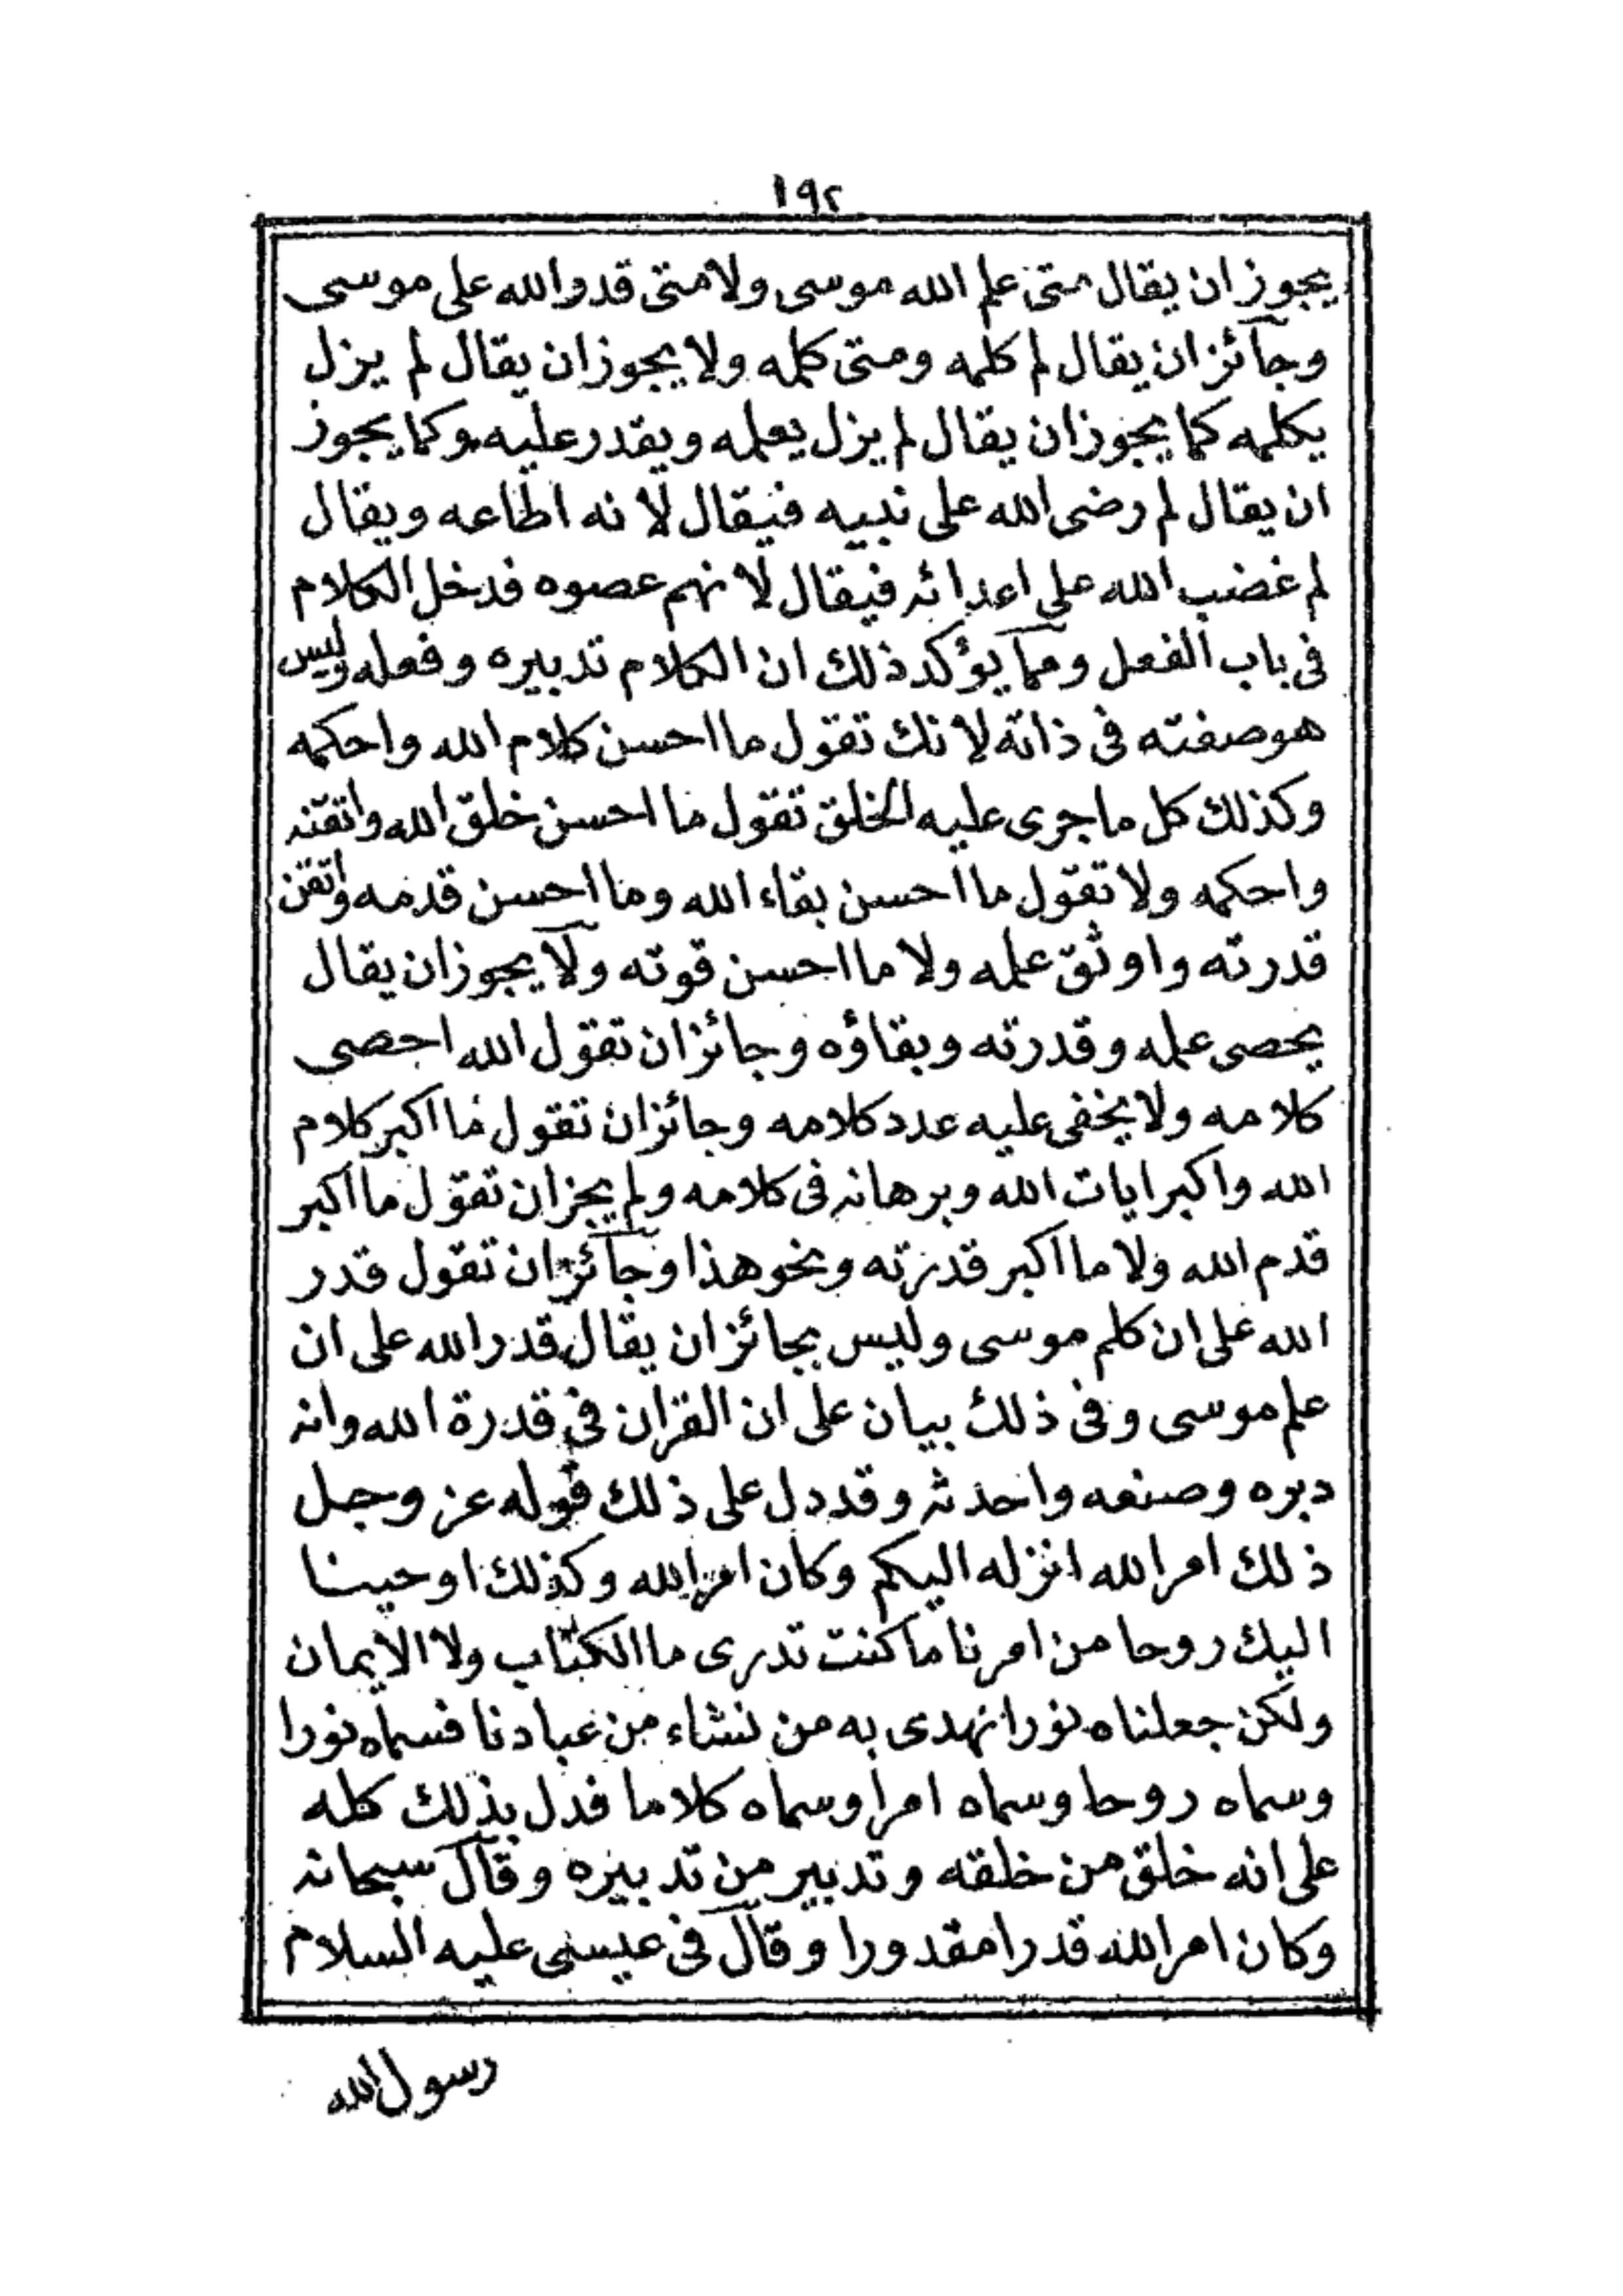 ١٩٢
يجوزان يقال متى علم الله موسى ولامتى قدوالله على موسى
وجآئزان يقال لم كلمه ومتى كلمه ولايجوزان يقال لم يزل
يكلمه كما يجوزان يقال لم يزل يعلمه ويقدر عليه وكما يجوز
ان يقال لم رضى الله على نبيه فيقال لانه اطاعه ويقال
لم غضب الله على اعدائه فيقال لانهم عصوه فدخل الكلام
فى باب الفعل ومما يؤكد ذلك ان الكلام تدبيره وفعله وليس
هو صفته فى ذاته لانك تقول ما احسن كلام الله واحكمه
وكذلك كل ما جرى عليه الخلق تقول ما احسن خلق الله واتقنه
واحكمه ولا تقول ما احسن بقاء الله وما احسن قدمه واتقن
قدرته واوثق علمه ولا ما احسن قوته ولآيجوزان يقال
يحصى علمه وقدرته وبقاؤه وجائزان تقول الله احصى
كلامه ولا يخفى عليه عدد كلامه وجائزان تقول ما اكبر كلام
الله واكبر ايات الله وبرهانه فى كلامه ولم يجزان تقول ما اكبر
قدم الله ولا ما اكبر قدرته ونحو هذا وجآئزان تقول قدر
الله على ان كلم موسى وليس بجائزان يقال قدر الله على ان
علم موسى وفى ذلك بيان على ان القران فى قدرة الله وانه
دبره وصنعه واحدثه وقد دل على ذلك قوله عز وجل
ذلك امر الله انزله اليكم وكان امر الله وكذلك اوحينا
اليك روحا من امرنا ما كنت تدرى ما الكتاب ولا الايمان
ولكن جعلناه نورا نهدى به من نشاء من عبادنا فسماه نورا
وسماه روحا وسماه امرا وسماه كلاما فدل بذلك كله
على انه خلق من خلقه وتدبير من تدبيره وقآل سبحانه
وكان امر الله قدرا مقدورا وقآل فى عيسى عليه السلام
رسول الله